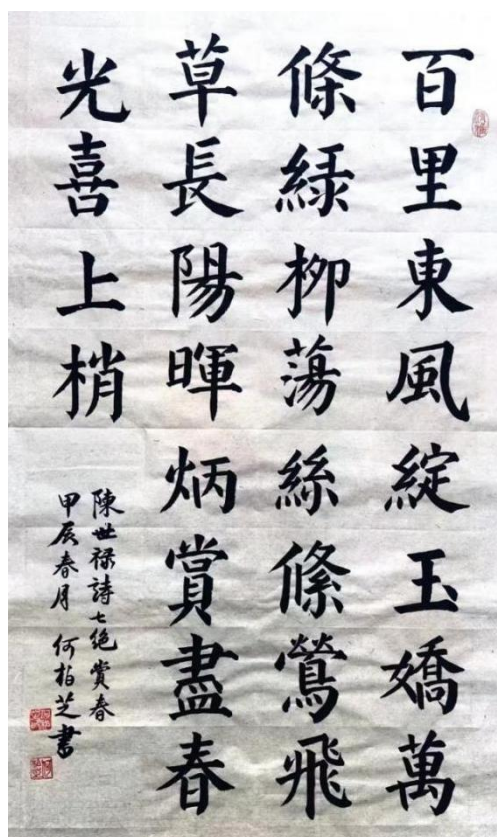 百里東風綻玉嬌萬
條綠柳蕩絲絛鶯飛
草長陽暉炳賞盡春
光喜上梢
陳世祿詩七絕賞春
甲辰春月 何柏芝書